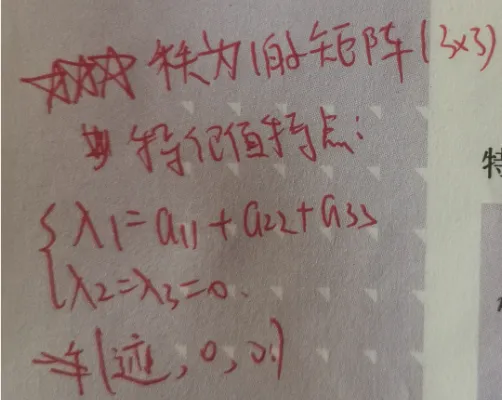 ☆☆☆ 秩为1的矩阵(3×3)
特征值特点:
λ1=a11+a22+a33
λ2=λ3=0.
(迹,0,0)
特